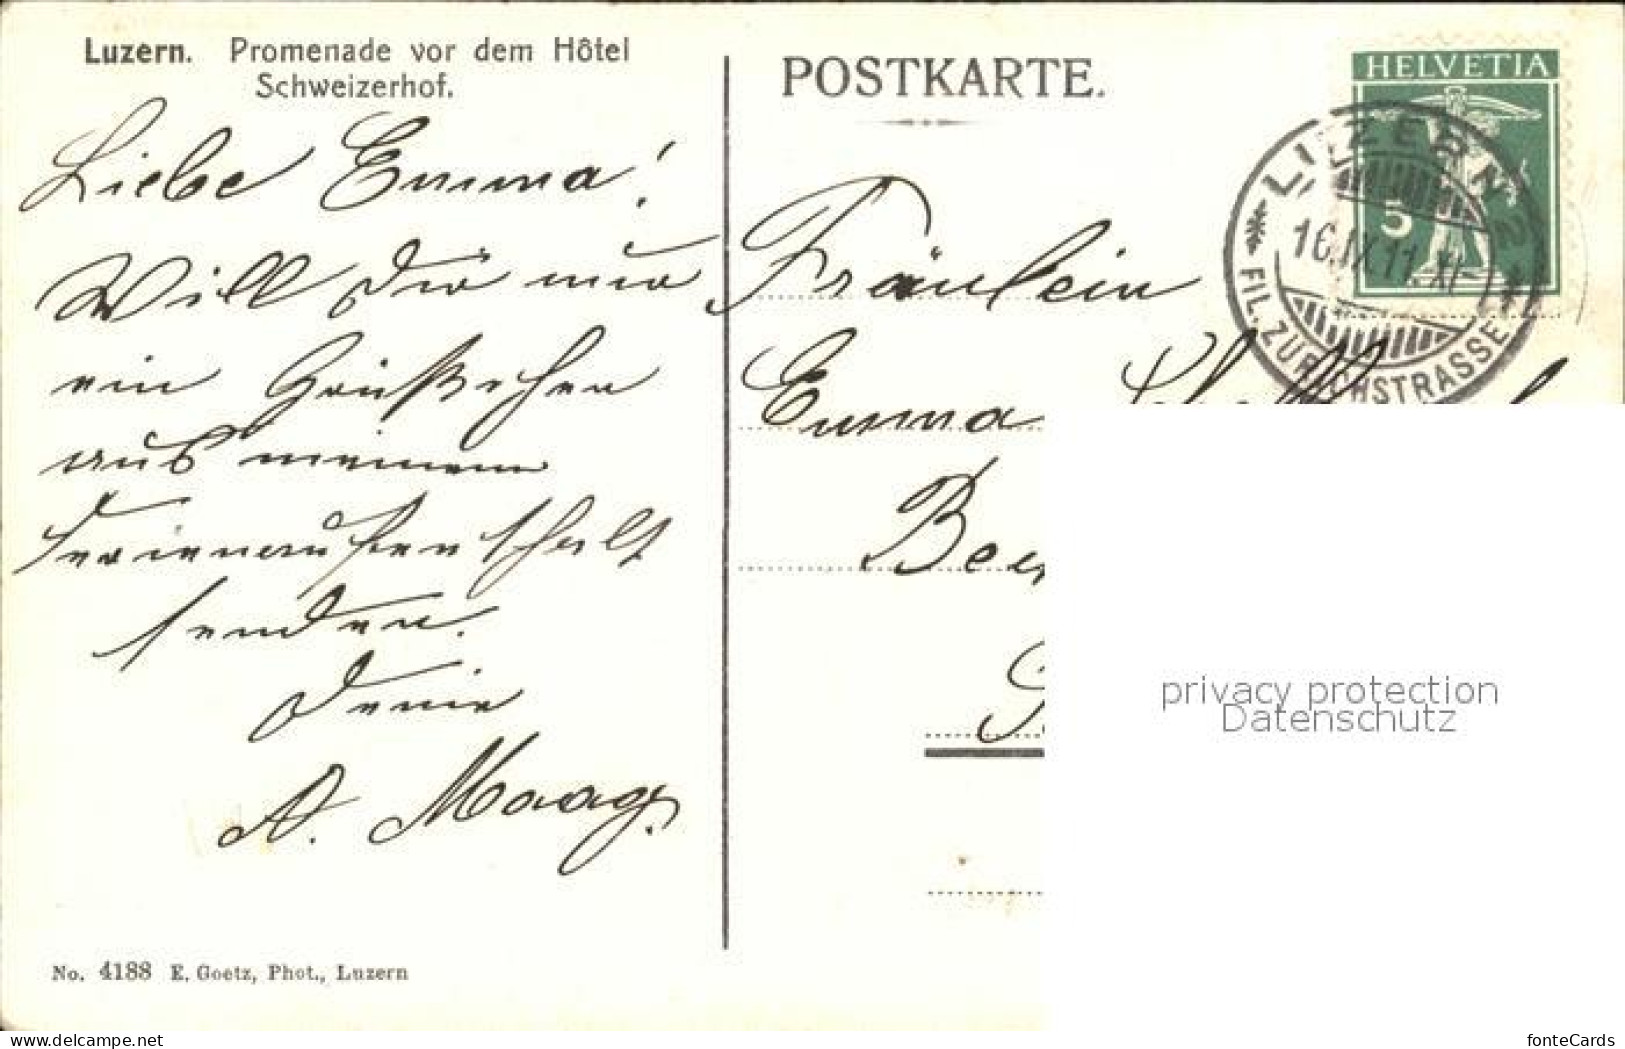 Luzern. Promenade vor dem Hôtel
Schweizerhof.
POSTKARTE.
HELVETIA
5
LUZERN 2
16.IX.11 XI
FIL. ZÜRICHSTRASSE
Liebe Emma!
Will Dir nur
ein Grüßchen
aus meinem
Ferienaufenthalt
senden.
Deine
A. Maag.
Fräulein
Emma
No. 4188 E. Goetz, Phot., Luzern
privacy protection
Datenschutz
www.delcampe.net
fonteCards